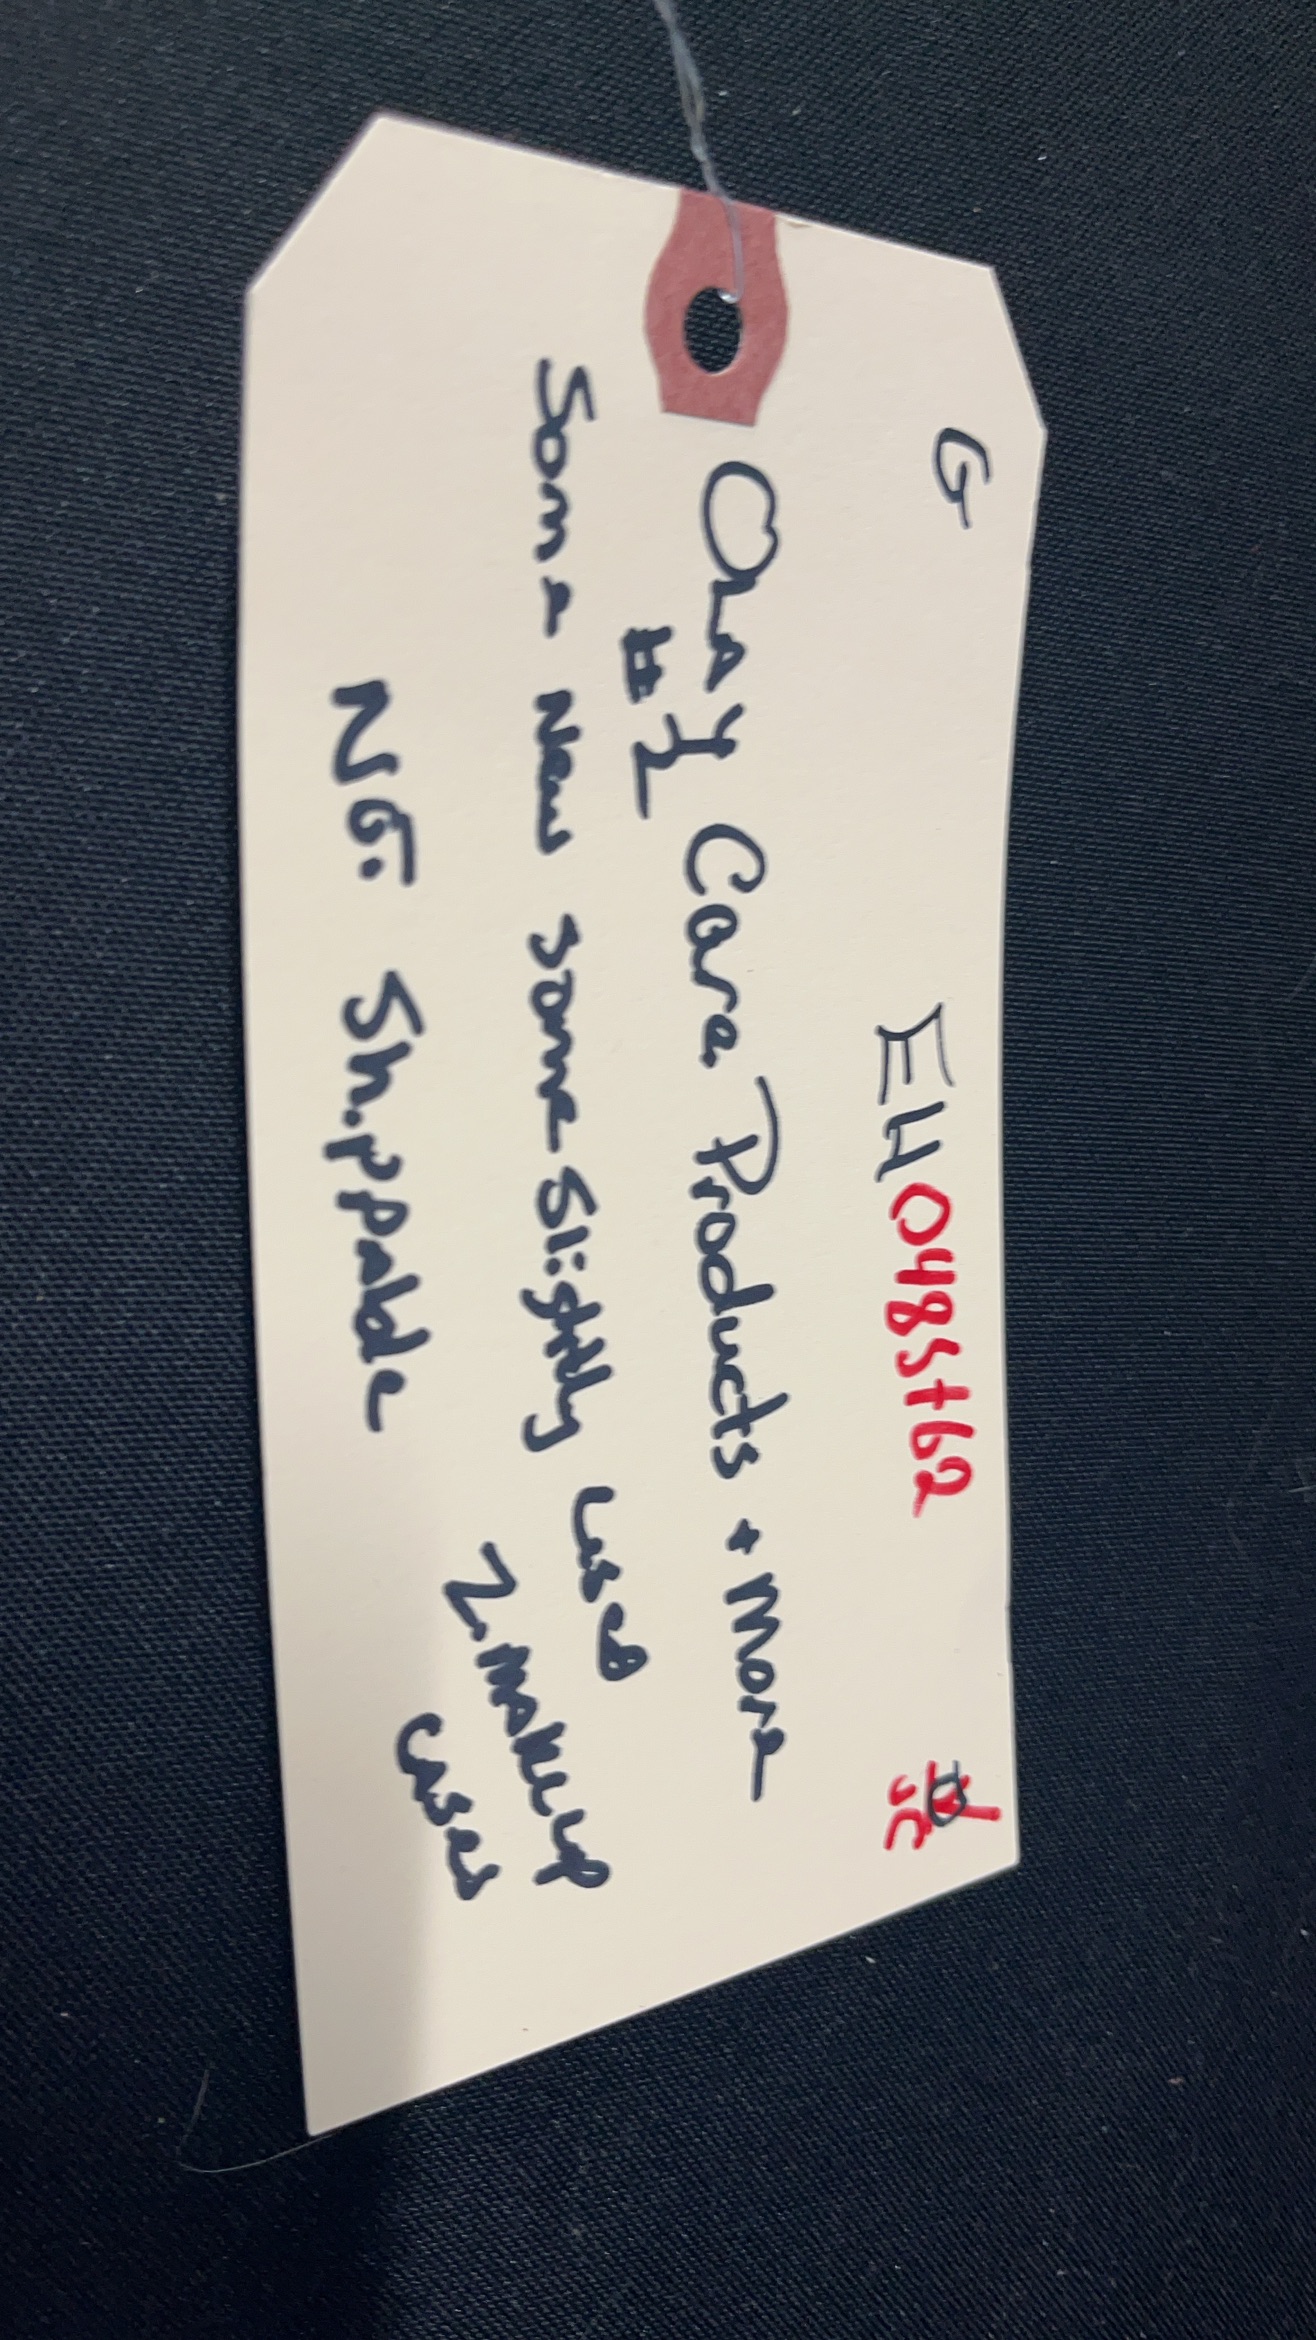 G EH0485762
OLAY Care Products + More
Some New some Slightly used
2 makeup
cases
NOT Shippable